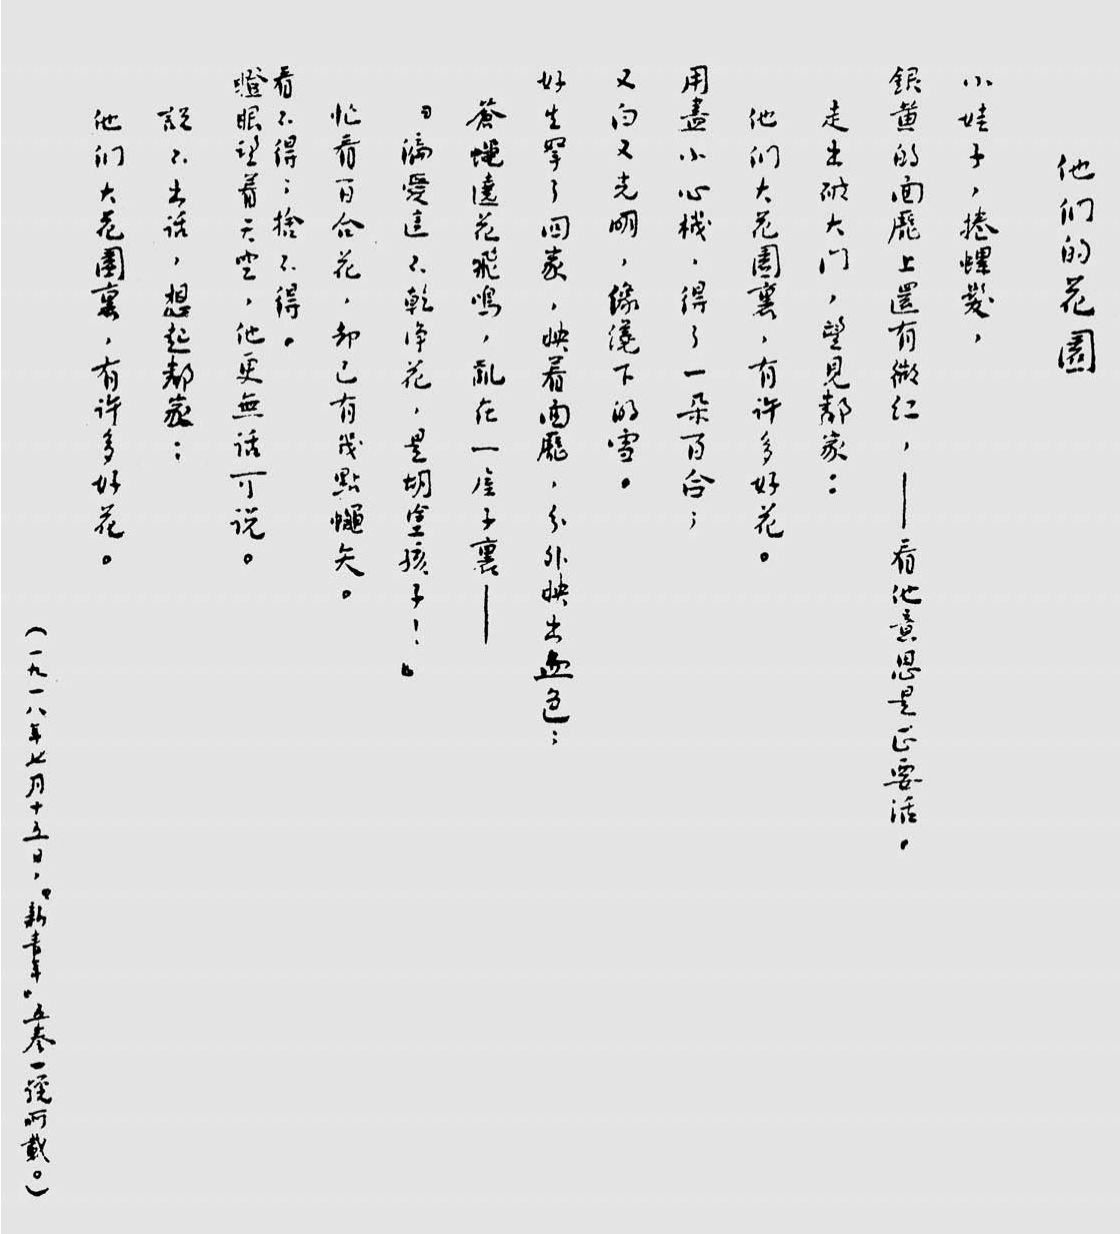 他们的花園
小娃子，捲螺髮，
銀黄的面龐上還有微红，——看他意思是正要活。
走出破大门，望見鄰家：
他们大花園裏，有许多好花。
用盡小心機，得了一朵百合；
又白又光明，像纔下的雪。
好生拏了回家，映着面龐，分外映出血色；
蒼蠅遶花飛鳴，亂在一屋子裏——
『偏愛這不乾净花，是胡塗孩子！』
忙看百合花，却已有幾點蠅矢。
看不得；捨不得。
瞪眼望着天空，他更無話可说。
說不出话，想起鄰家：
他们大花園裏，有许多好花。
（一九一八年七月十五日，『新青年』五卷一號所載。）